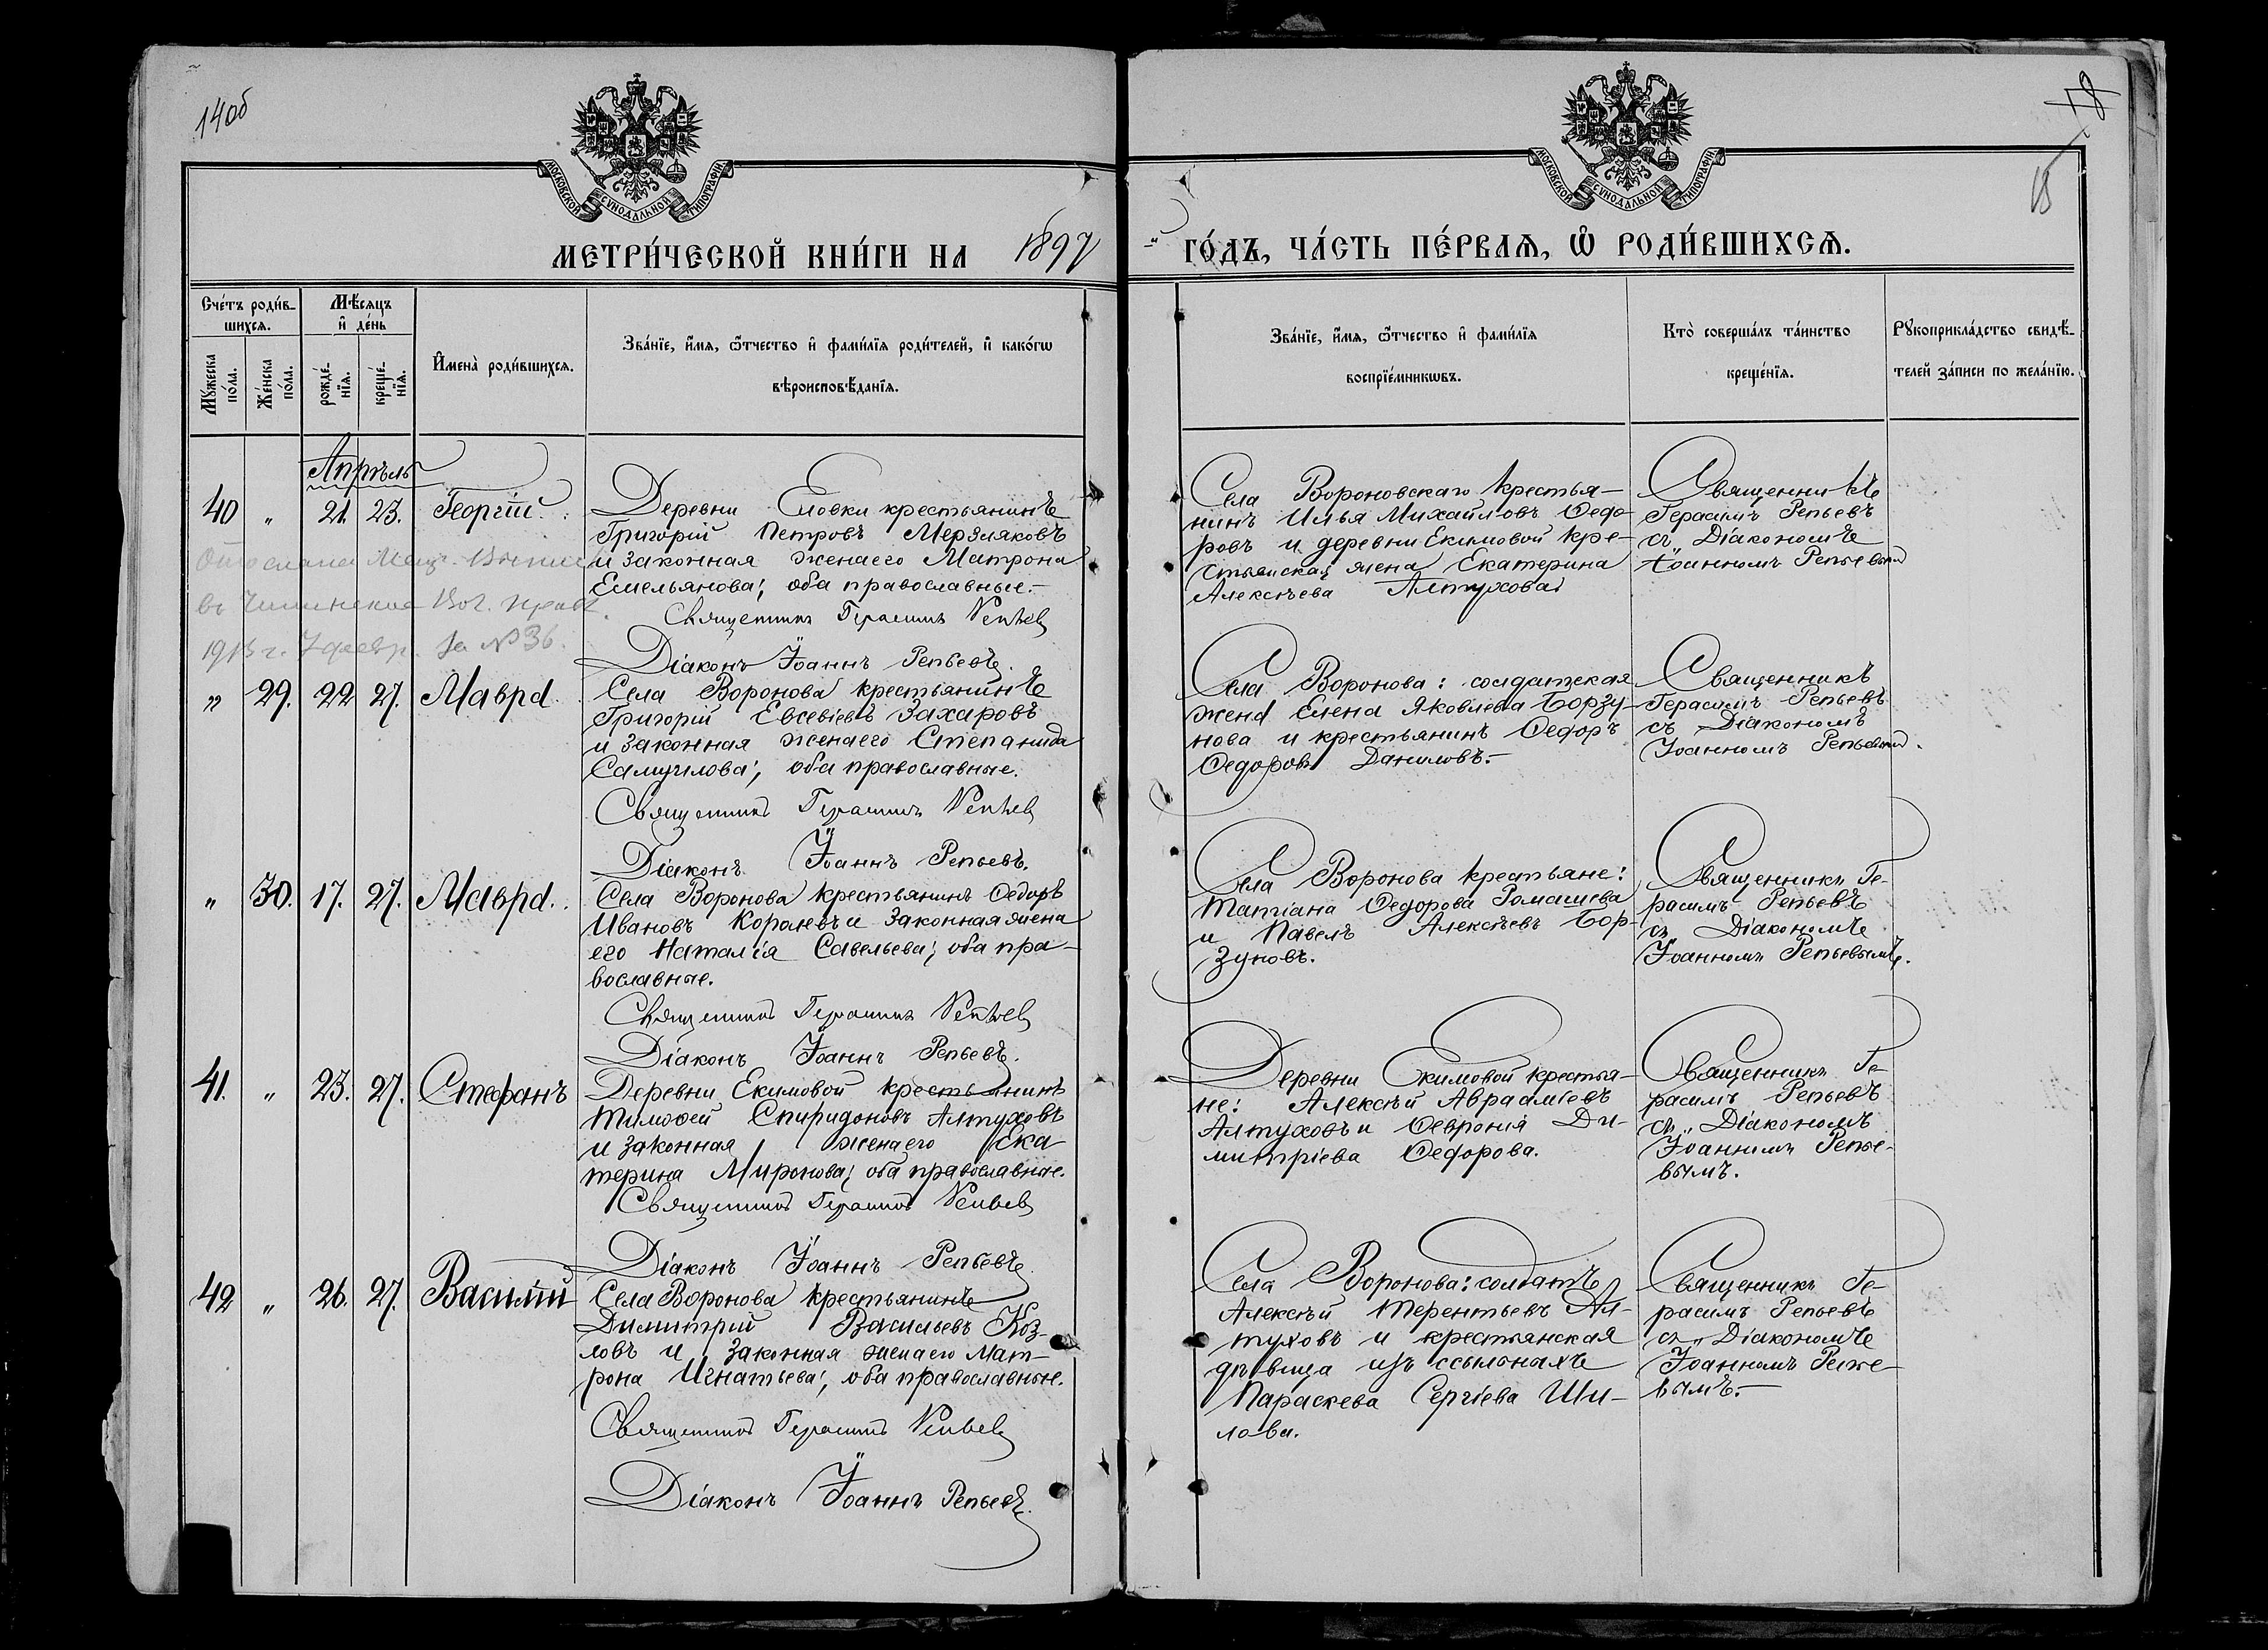 140б
18
15
МОСКОВСКОЙ СѴНОДАЛЬНОЙ ТИПОГРАФІИ.
МОСКОВСКОЙ СѴНОДАЛЬНОЙ ТИПОГРАФІИ.
МЕТРИ́ЧЕСКОЙ КНИ́ГИ НА 1897
ГО́ДЪ, ЧА́СТЬ ПЕ́РВАѦ, Ѡ҆ РОДИ́ВШИХСѦ.
Сче́тъ роди́в-
шихсѧ.
Мꙋжеска
по́ла.
Же́нска
по́ла.
Мѣ́сѧцъ
и҆ де́нь
рожде́-
нїѧ.
креще́-
нїѧ.
И҆мена̀ роди́вшихсѧ.
Зва́нїе, и҆́мѧ, ѻ҆́тчество и҆ фами́лїѧ роди́телей, и҆ како́гѡ
вѣроисповѣ́данїѧ.
Зва́нїе, и҆́мѧ, ѻ҆́тчество и҆ фами́лїѧ
воспрїе́мникѡвъ.
Кто̀ соверша́лъ та́инство
креще́нїѧ.
Рꙋкоприкла́дство свидѣ́-
телей за́писи по жела́нїю.
Апрѣль
40 " 21. 23. Георгій.
Деревни Еловки крестьянинъ
Григорій Петровъ Мерзляковъ
и законная жена его Матрона
Емельянова; оба православные.-
Священникъ Герасимъ Репьев
Діаконъ Іоаннъ Репьевъ.
Села Вороновскаго крестья-
нинъ Илья Михайловъ Ѳедо-
ровъ и деревни Екимовой кре-
стьянская жена Екатерина
Алексѣева Алтухова
Священникъ
Герасимъ Репьевъ
съ Діакономъ
Іоанномъ Репьевым
Отослана
въ
1915 г. 7 февр. за № 36.
" 29. 22 27. Мавра.
Села Воронова крестьянинъ
Григорій Евсевіевъ Захаровъ
и законная жена его Степанида
Самуилова; оба православные.
Священникъ Герасимъ Репьев
Діаконъ Іоаннъ Репьевъ.
Села Воронова: солдатская
жена Елена Яковлева Борзу-
нова и крестьянинъ Ѳедоръ
Ѳедоровъ Даниловъ.-
Священникъ
Герасимъ Репьевъ
съ Діакономъ
Іоанномъ Репьевым.
" 30. 17. 27. Мавра.
Села Воронова крестьянинъ Ѳедоръ
Ивановъ Королевъ и законная жена
его Наталія Савельева; оба пра-
вославные.
Священникъ Герасимъ Репьев
Діаконъ Іоаннъ Репьевъ.
Села Воронова крестьяне:
Татіана Ѳедорова Ромашева
и Павелъ Алексѣевъ Бор-
зуновъ.
Священникъ Ге-
расимъ Репьевъ
съ Діакономъ
Іоанномъ Репьевымъ.
41. " 23. 27. Стефанъ
Деревни Екимовой крестьянинъ
Тимоѳей Спиридоновъ Алтуховъ
и законная жена его Ека-
терина Миронова; оба православные.
Священникъ Герасимъ Репьев
Діаконъ Іоаннъ Репьевъ
Деревни Екимовой крестья-
не: Алексѣй Авраамiевъ
Алтуховъ и Ѳевронія Ди-
митріева Ѳедорова.
Священникъ Ге-
расимъ Репьевъ
съ Діакономъ
Іоанномъ Репье-
вымъ.
42 " 26. 27. Василій
Села Воронова крестьянинъ
Димитрій Васильевъ Коз-
ловъ и законная жена его Мат-
рона Игнатьева; оба православные.
Священникъ Герасимъ Репьев
Діаконъ Іоаннъ Репьевъ.
Села Воронова: солдатъ
Алексѣй Терентьевъ Ал-
туховъ и крестьянская
дѣвица изъ ссыльныхъ
Параскева Сергіева Ши-
лова.
Священникъ Ге-
расимъ Репьевъ
съ Діакономъ
Іоанномъ Репье-
вымъ.-